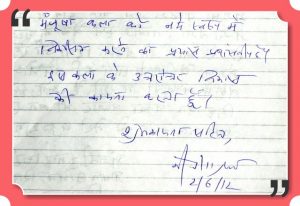 मंजूषा कला को नये स्वरूप में
का प्रयास प्रशंसनीय है।
कला के उत्तरोत्तर विकास
की कामना करता हूँ।
शुभकामना सहित,
2/6/12